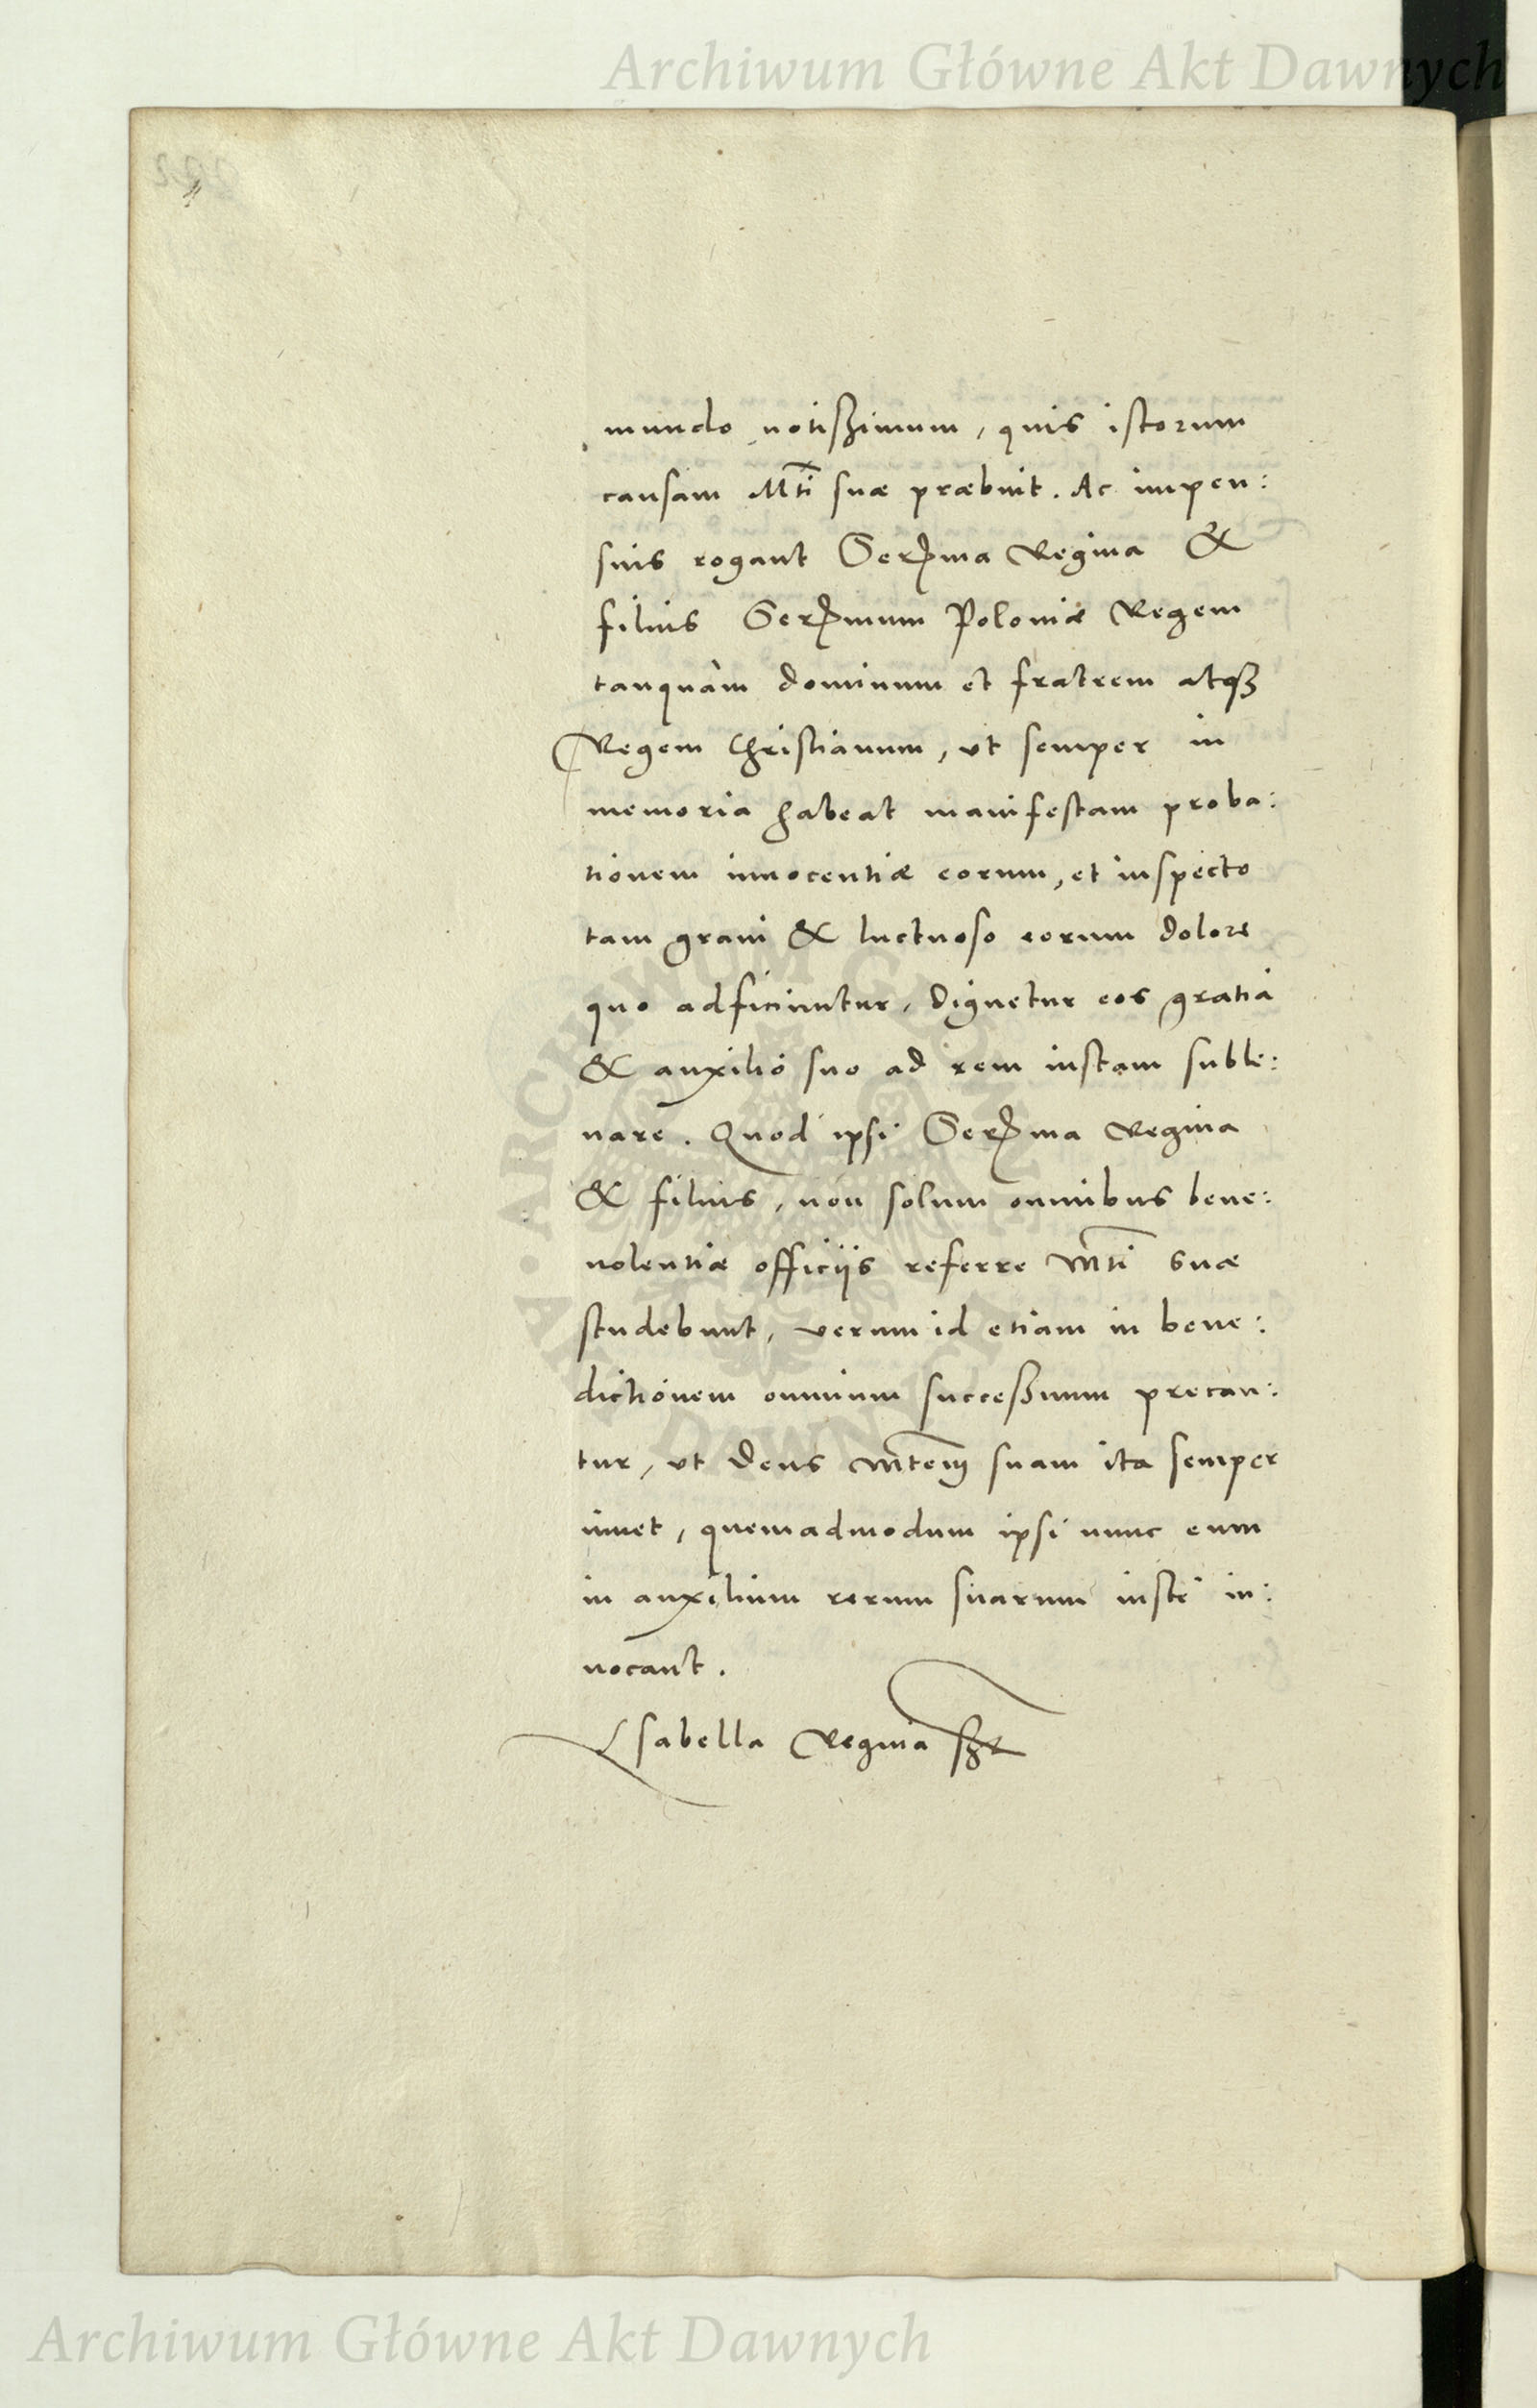 Archiwum Główne Akt Dawnych
mundo notissimum, quis istorum
causam Mti suæ præbuit. Ac impen:
sius rogant Serma Regina &
filius Sermum Poloniæ Regem
tanquàm dominum et fratrem atq3
Regem Christianum, ut semper in
memoria habeat manifestam proba:
tionem innocentiæ eorum, et inspecto
tam graui & luctuoso eorum dolore
quo adficiuntur, dignetur eos gratia
& auxilio suo ad rem iustam suble:
uare. Quod ipsi Serma Regina
& filius, non solum omnibus bene:
uolentiæ officijs referre Mti suæ
studebunt, verum id etiam in bene:
dictionem omnium successuum precan:
tur, ut Deus Mtem suam ita semper
iuuet, quemadmodum ipsi nunc eum
in auxilium rerum suarum iuste in:
uocant.
Isabella Regina
ARCHIWUM GŁÓWNE AKT DAWNYCH
Archiwum Główne Akt Dawnych